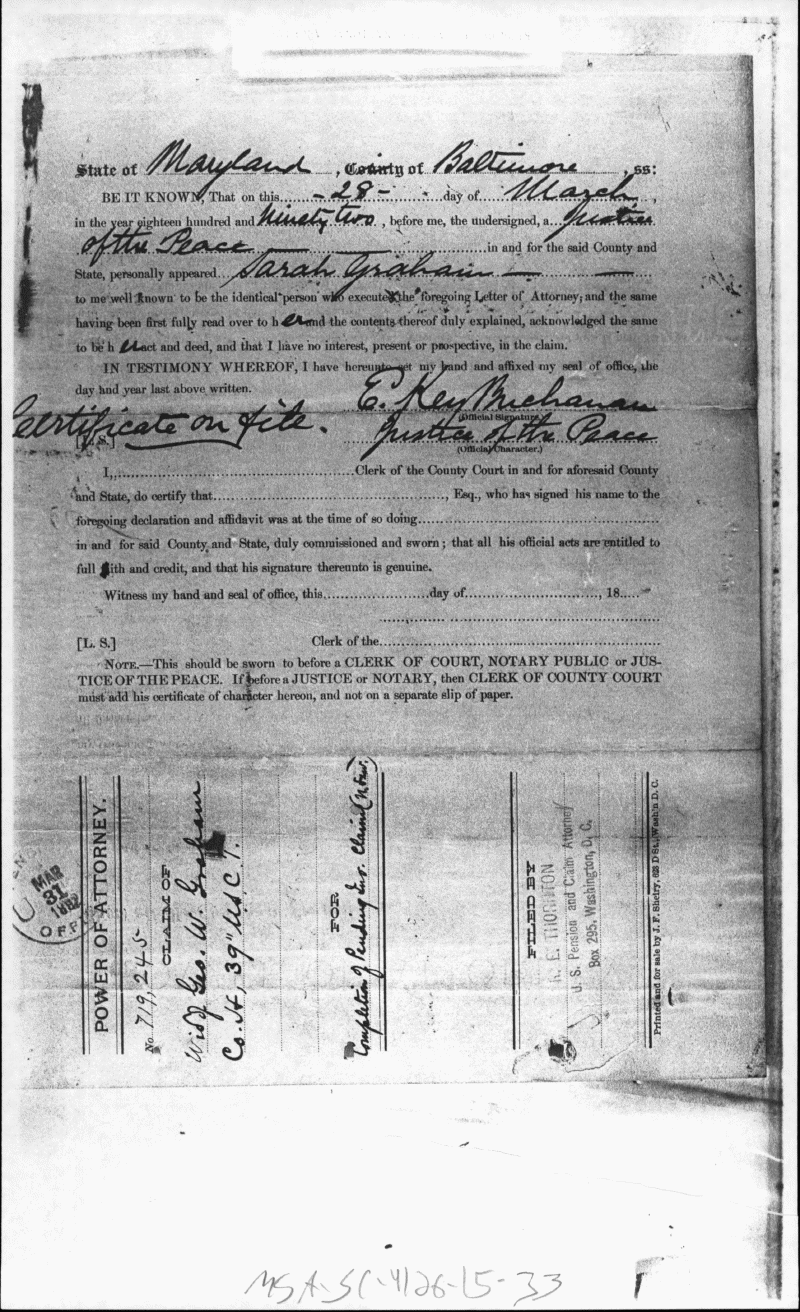 State of Maryland, County of Baltimore, ss:
BE IT KNOWN, That on this - 28 - day of March,
in the year eighteen hundred and Ninety two, before me, the undersigned, a Justice
of the Peace in and for the said County and
State, personally appeared Sarah Graham
to me well known to be the identical person who executed the foregoing Letter of Attorney; and the same
having been first fully read over to her and the contents thereof duly explained, acknowledged the same
to be her act and deed, and that I have no interest, present or prospective, in the claim.
IN TESTIMONY WHEREOF, I have hereunto set my hand and affixed my seal of office, the
day and year last above written.
E. Key Buchanan
(Official Signature.)
Certificate on file.
[L. S.]
Justice of the Peace
(Official Character.)
I, ........ Clerk of the County Court in and for aforesaid County
and State, do certify that ........, Esq., who has signed his name to the
foregoing declaration and affidavit was at the time of so doing ........
in and for said County and State, duly commissioned and sworn; that all his official acts are entitled to
full faith and credit, and that his signature thereunto is genuine.
Witness my hand and seal of office, this ........ day of ........, 18.....
[L. S.] Clerk of the ........
NOTE.—This should be sworn to before a CLERK OF COURT, NOTARY PUBLIC or JUS-
TICE OF THE PEACE. If before a JUSTICE or NOTARY, then CLERK OF COUNTY COURT
must add his certificate of character hereon, and not on a separate slip of paper.
MAR
31
1892
OFF
POWER OF ATTORNEY.
No. 719,245
CLAIM OF
Wid of Geo. W. Graham
Co. H, 39" USC T.
FOR
Completion of Pending Inv. Claim (
FILED BY
E. THORNTON
U. S. Pension and Claim Attorney
Box 295, Washington, D. C.
Printed and for sale by J. F. Sheiry, 623 D St., Washin D. C.
MSA-SC-4126-15-33